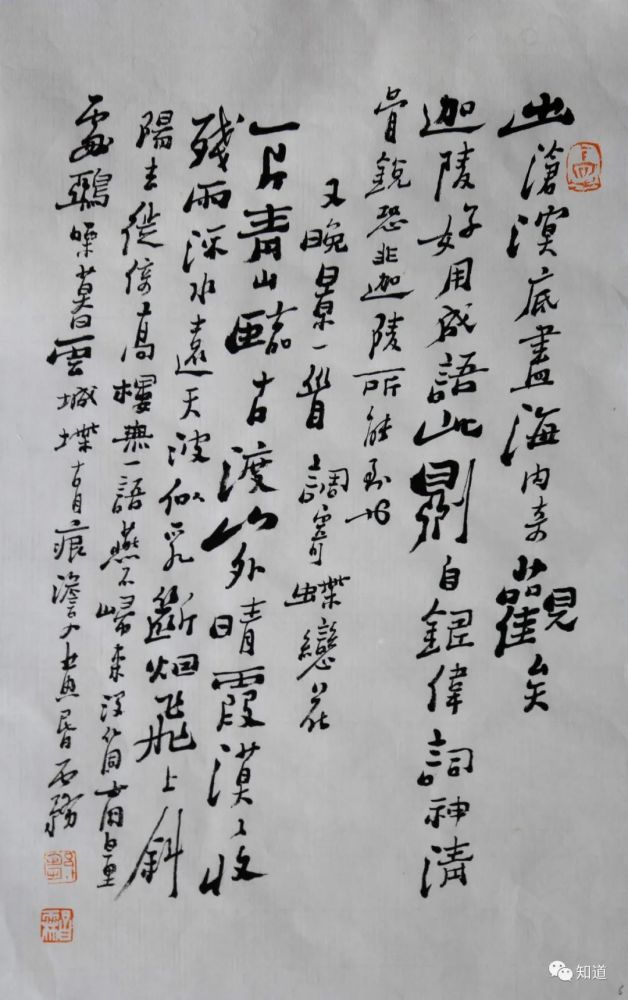 出滄溟底盡海内奇觀矣
迦陵好用成語此則自鑄偉詞神清
骨銳恐非迦陵所能到也
又晚景一首調寄蝶戀花
一片青山臨古渡山外晴霞漠々收
殘雨流水遠天波似乳斷烟飛上斜
陽去徙倚高樓無一語燕不歸來沒箇商量
處鴉噪暮雲城堞古月痕澹入黄昏霧
知道